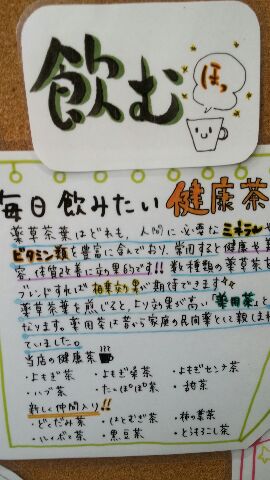 飲む
ほっ
毎日飲みたい健康茶
薬草茶葉はどれも、人間に必要なミネラルや
ビタミン類を豊富に含んでおり、常用すると健康や美
容、体質改善に効果的です!!数種類の薬草茶を
ブレンドすれば相乗効果が期待できます
薬草茶葉を煎じると、より効果が高い「薬用茶」と
なります。薬用茶は昔から家庭の民間薬として親しま
ていました。
当店の健康茶
・よもぎ茶 ・よもぎ桑茶 ・よもぎセンナ茶
・ハブ茶 ・たんぽぽ茶 ・甜茶
新しく仲間入り!!
・どくだみ茶 ・はとむぎ茶 ・柿の葉茶
・ルイボス茶 ・黒豆茶 ・とうもろこし茶